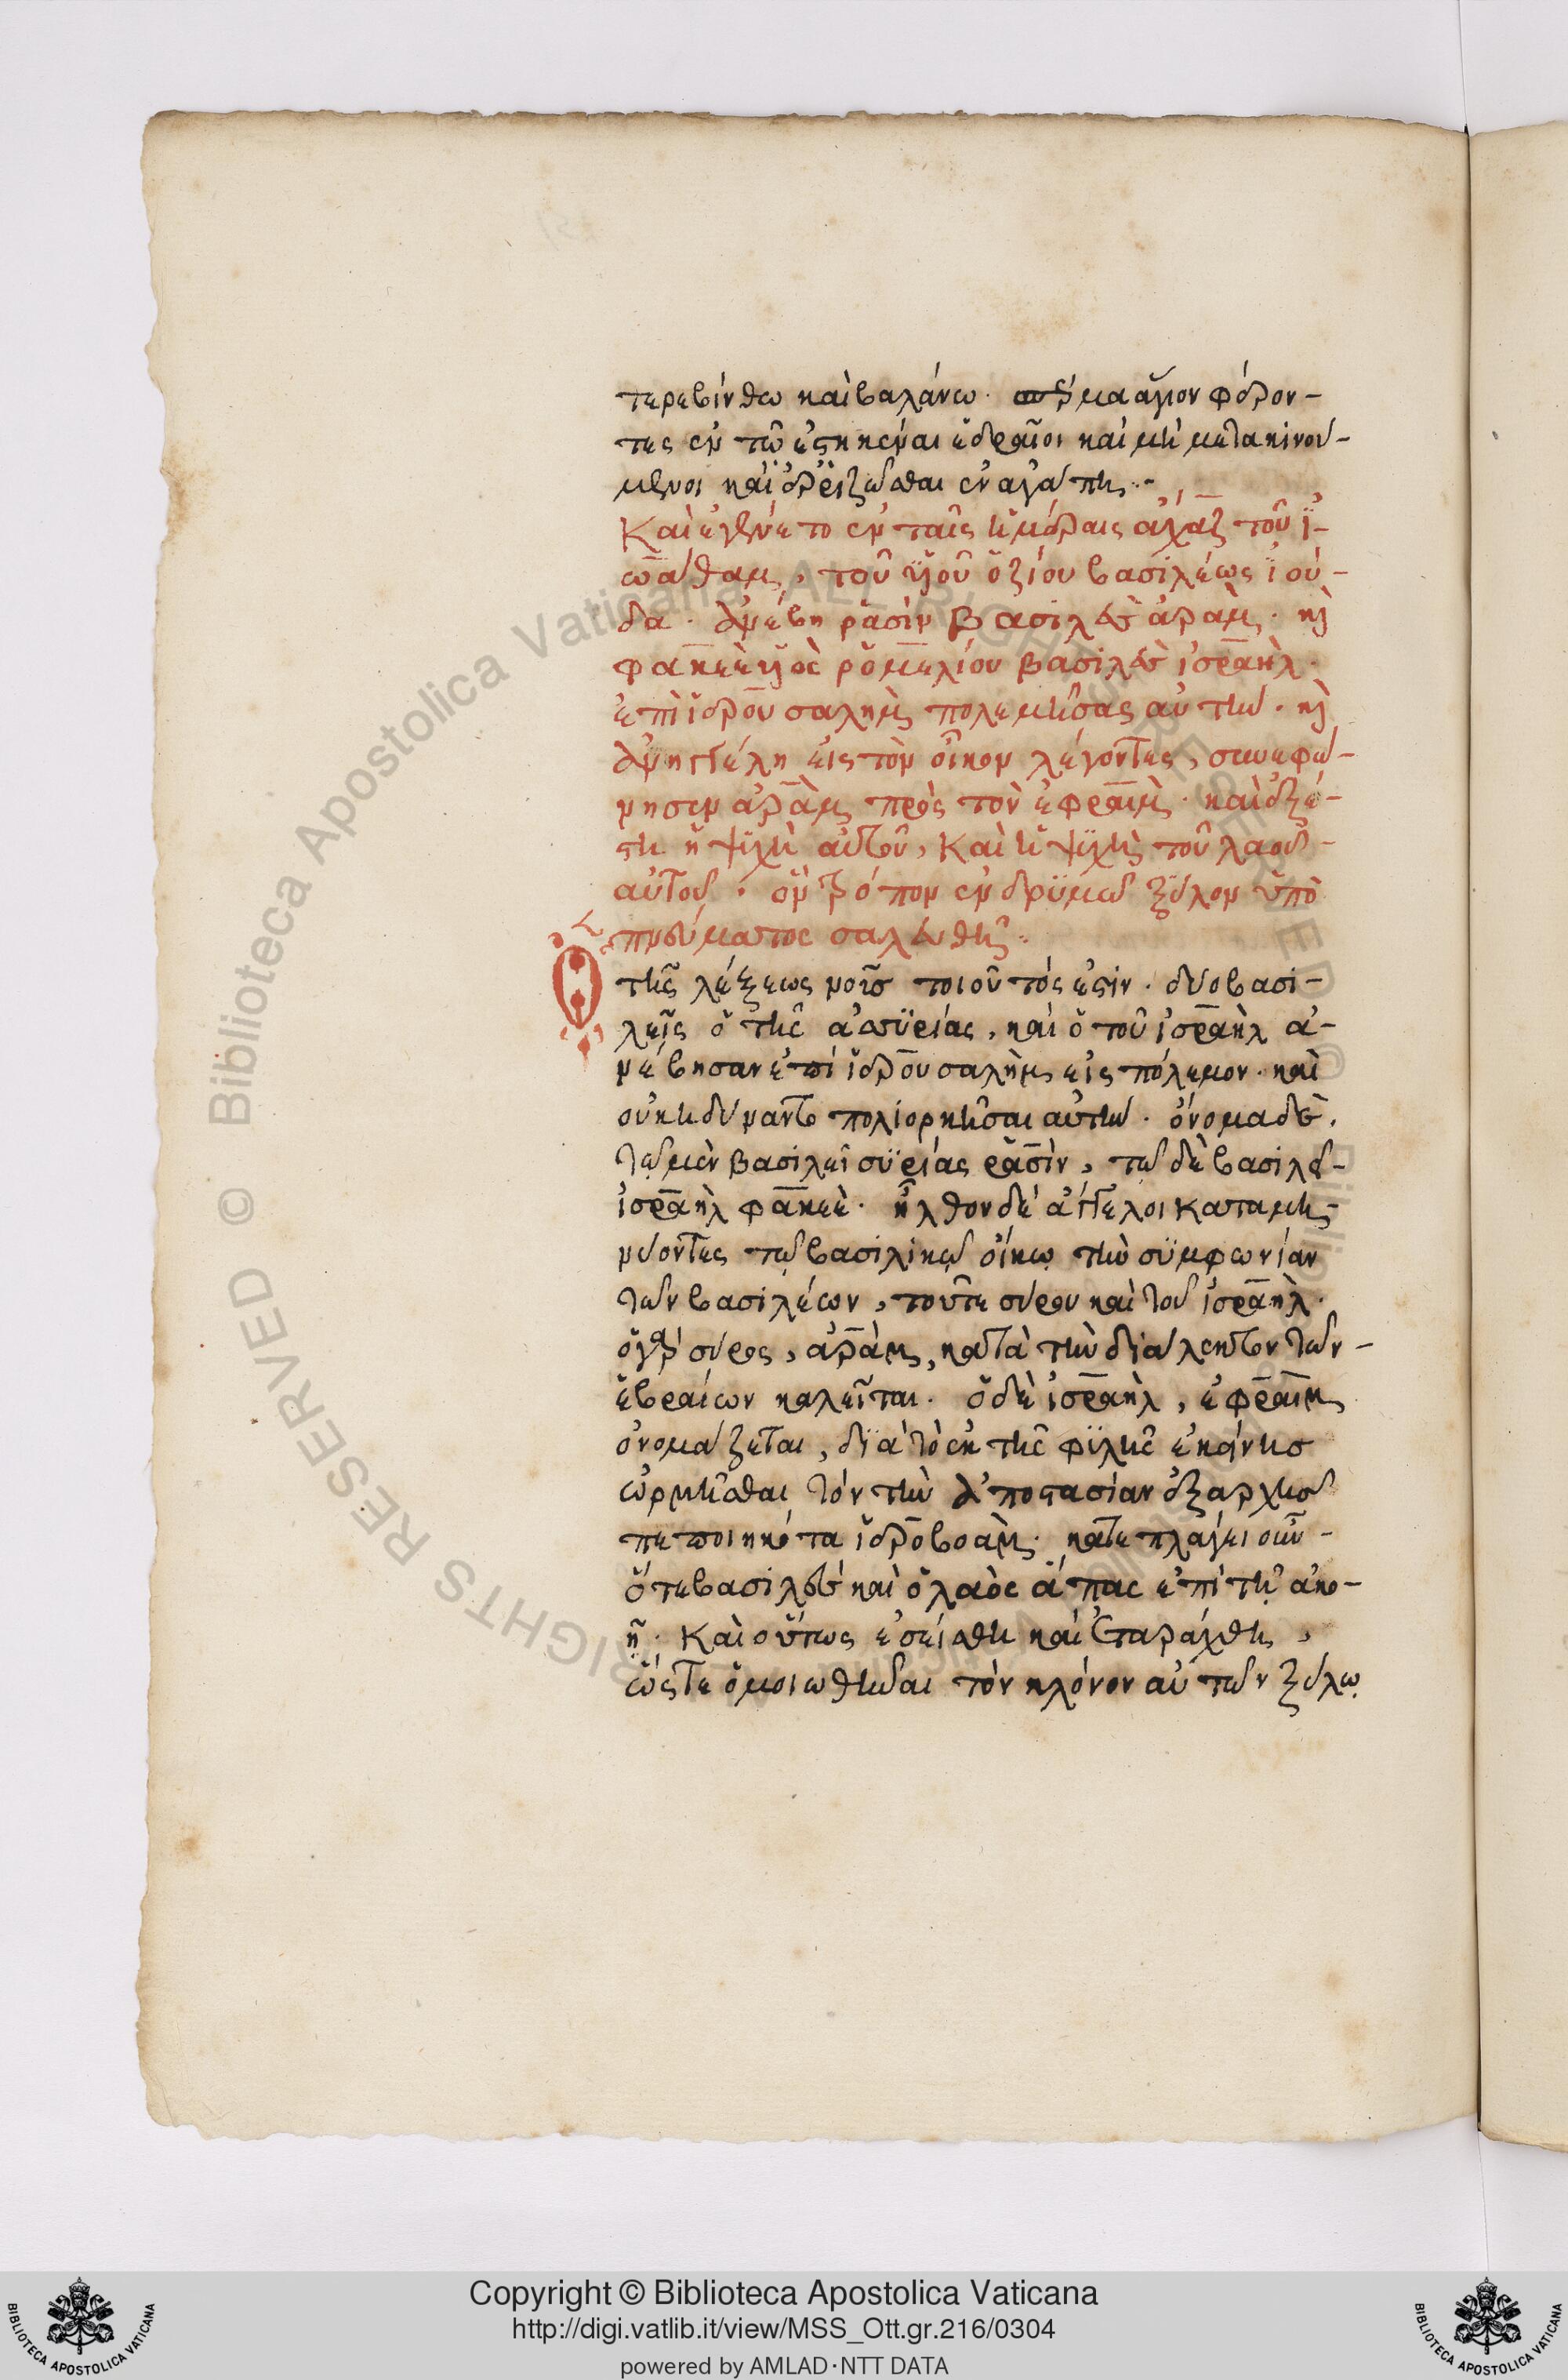 τερεβίνθω καὶ βαλάνω· σπέρμα ἅγιον φέρον-
τες ἐν τῶ ἑστηκέναι ἑδραῖοι καὶ μὴ μετακινού-
μενοι καὶ ἐρριζῶσθαι ἐν ἀγάπη:-
Καὶ ἐγένετο ἐν ταῖς ἡμέραις ἀχὰζ τοῦ ἰ-
ωάθαμ, τοῦ υἱοῦ ὀζίου βασιλέως ἰού-
δα· ἀνέβη ρασὶν βασιλεὺς ἀρὰμ· κὶ
φακεὲ υἱὸς ρομελίου βασιλεὺς ἰσραὴλ·
ἐπὶ ἱερουσαλὴμ πολεμῆσαι αὐτὴν· κὶ
ἀνηγγέλη εἰς τὸν οἶκον λέγοντες, συνεφώ-
νησεν ἀρὰμ πρὸς τὸν ἐφραῒμ· καὶ ἐξέ-
στη ἡ ψυχὴ αὐτοῦ, καὶ ἡ ψυχὴ τοῦ λαοῦ-
αὐτοῦ· ὃν τρόπον ἐν δρυμῶ ξύλον ὑπὸ
πνεύματος σαλευθῆ:
Ὁ τῆς λέξεως νοῦς τοιοῦτός ἐστιν· δύο βασι-
λεῖς ὁ τῆς ἀσσυρίας, καὶ ὁ τοῦ ἰσραὴλ ἀ-
νέβησαν ἐπὶ ἱερουσαλὴμ εἰς πόλεμον· καὶ
οὐκ ἠδύναντο πολιορκῆσαι αὐτὴν· ὄνομα δὲ,
τῶ μὲν βασιλεῖ συρίας ρασὶν, τῶ δὲ βασιλεῖ-
ἰσραὴλ φακεὲ· ἦλθον δὲ ἄγγελοι καταμη-
νύοντες τῶ βασιλικῶ οἴκω τὴν συμφωνίαν
τῶν βασιλέων, τοῦτε σύρου καὶ τοῦ ἰσραὴλ·
ὁ γὰρ σύρος, ἀρὰμ, κατὰ τὴν διάλεκτον τῶν-
ἑβραίων καλεῖται· ὁ δὲ ἰσραὴλ, ἐφραῒμ
ὀνομάζεται, διὰ τὸ ἐκ τῆς φυλῆς ἐκείνης
ὡρμῆσθαι τόν τὴν ἀποστασίαν ἐξαρχῆς
πεποιηκότα ἱεροβοὰμ· κατεπλάγει οὖν-
ὅτε βασιλεὺς καὶ ὁ λαὸς ἅπας ἐπὶ τῆ ἀκο-
ῆ· Καὶ οὕτως ἐσείσθη καὶ ἐταράχθη,
ὥςτε ὁμοιωθῆναι τὸν κλόνον αὐτῶν ξύλω
Copyright © Biblioteca Apostolica Vaticana
http://digi.vatlib.it/view/MSS_Ott.gr.216/0304
powered by AMLAD·NTT DATA